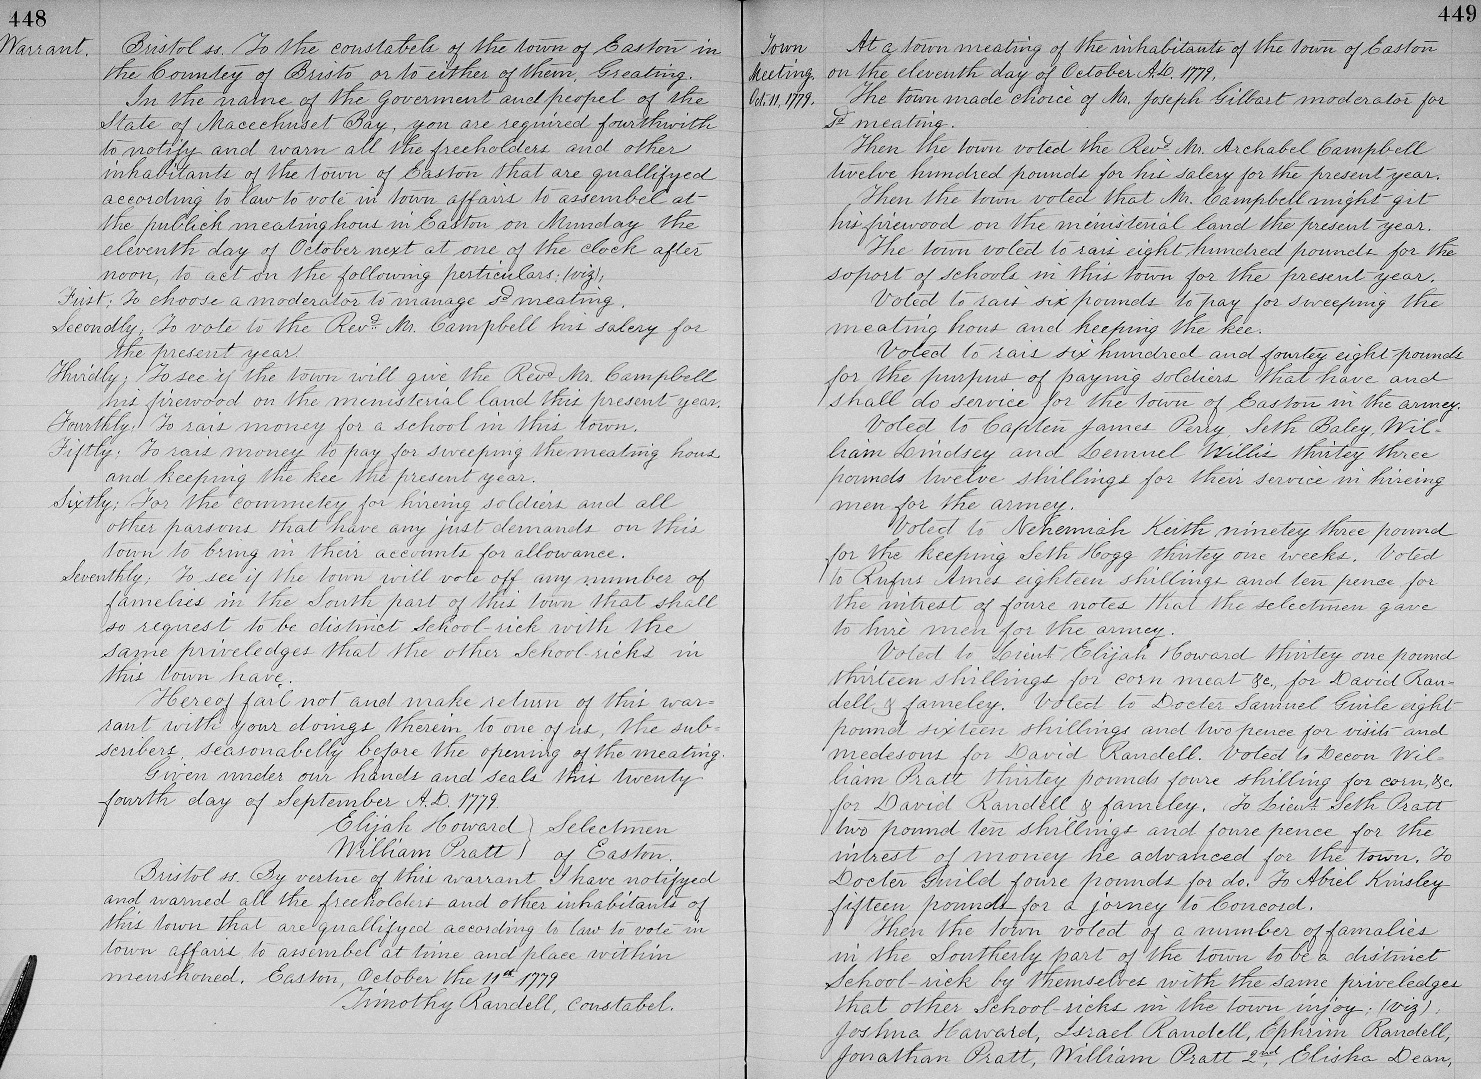 448
Warrant.
Bristol ss. To the constabels of the town of Easton in
the Countey of Bristo, or to either of them, Greating.
In the name of the Goverment and peopel of the
State of Macechuset Bay, you are required fourthwith
to notify and warn all the freeholders and other
inhabitants of the town of Easton that are quallifyed
according to law to vote in town affairs to assembel at
the publick meatinghous in Easton on Munday the
eleventh day of October next at one of the clock after
noon, to act on the following perticulars; (viz);
First; To choose a moderator to manage sd meating.
Secondly; To vote to the Revd. Mr. Campbell his salery for
the present year.
Thirdly; To see if the town will give the Revd Mr. Campbell
his firewood on the ministerial land this present year.
Fourthly; To rais money for a school in this town.
Fiftly; To rais money to pay for sweeping the meating hous
and keeping the kee the present year.
Sixtly; For the commetey for hireing soldiers and all
other parsons that have any just demands on this
town to bring in their accounts for allowance.
Seventhly; To see if the town will vote off any number of
famelies in the South part of this town that shall
so request to be distinct School-rick with the
same priveledges that the other School-ricks in
this town have.
Hereof fail not and make return of this war-
rant with your doings therein to one of us, the sub-
scribers, seasonabelly before the opening of the meating.
Given under our hands and seals this twenty
fourth day of September A.D. 1779
Elijah Howard } Selectmen
William Pratt } of Easton.
Bristol ss. By vertue of this warrant I have notifyed
and warned all the freeholders and other inhabitants of
this town that are quallifyed according to law to vote in
town affairs to assembel at time and place within
menshoned. Easton, October the 11th 1779
Timothy Randell, constabel.
449
Town
Meeting,
Oct. 11, 1779.
At a town meating of the inhabitants of the town of Easton
on the eleventh day of October A.D. 1779,
The town made choice of Mr. Joseph Gilbart moderator for
sd meating.
Then the town voted the Revd. Mr. Archabel Campbell
twelve hundred pounds for his salery for the present year.
Then the town voted that Mr. Campbell might git
his firewood on the menisterial land the present year.
The town voted to rais eight hundred pounds for the
soport of schools in this town for the present year.
Voted to rais six pounds to pay for sweeping the
meating hous and keeping the kee.
Voted to rais six hundred and fourtey eight pounds
for the purpus of paying soldiers that have and
shall do service for the town of Easton in the armey.
Voted to Capten James Perry, Seth Baley, Wil-
liam Lindsey and Lemuel Willis thirtey three
pounds twelve shillings for their service in hireing
men for the armey.
Voted to Nehemiah Keith ninetey three pound
for the keeping Seth Hogg thirtey one weeks. Voted
to Rufus Ames eighteen shillings and ten pence for
the intrest of foure notes that the selectmen gave
to hire men for the armey.
Voted to Lieut. Elijah Howard thirtey one pound
thirteen shillings for corn meat &c., for David Ran-
dell & fameley. Voted to Docter Samuel Guile eight
pound sixteen shillings and two pence for visits and
medesons for David Randell. Voted to Decon Wil-
liam Pratt thirtey pounds foure shilling for corn, &c.
for David Randell & fameley. To Lieut. Seth Pratt
two pound ten shillings and foure pence for the
intrest of money he advanced for the town. To
Docter Guild foure pounds for do. To Abiel Kinsley
fifteen pounds for a jorney to Concord.
Then the town voted of a number of famalies
in the Southerly part of the town to be a distinct
School-rick by themselves with the same priveledges
that other School-ricks in the town injoy; (viz).
Joshua Haward, Israel Randell, Ephrim Randell,
Jonathan Pratt, William Pratt 2nd, Elisha Dean,